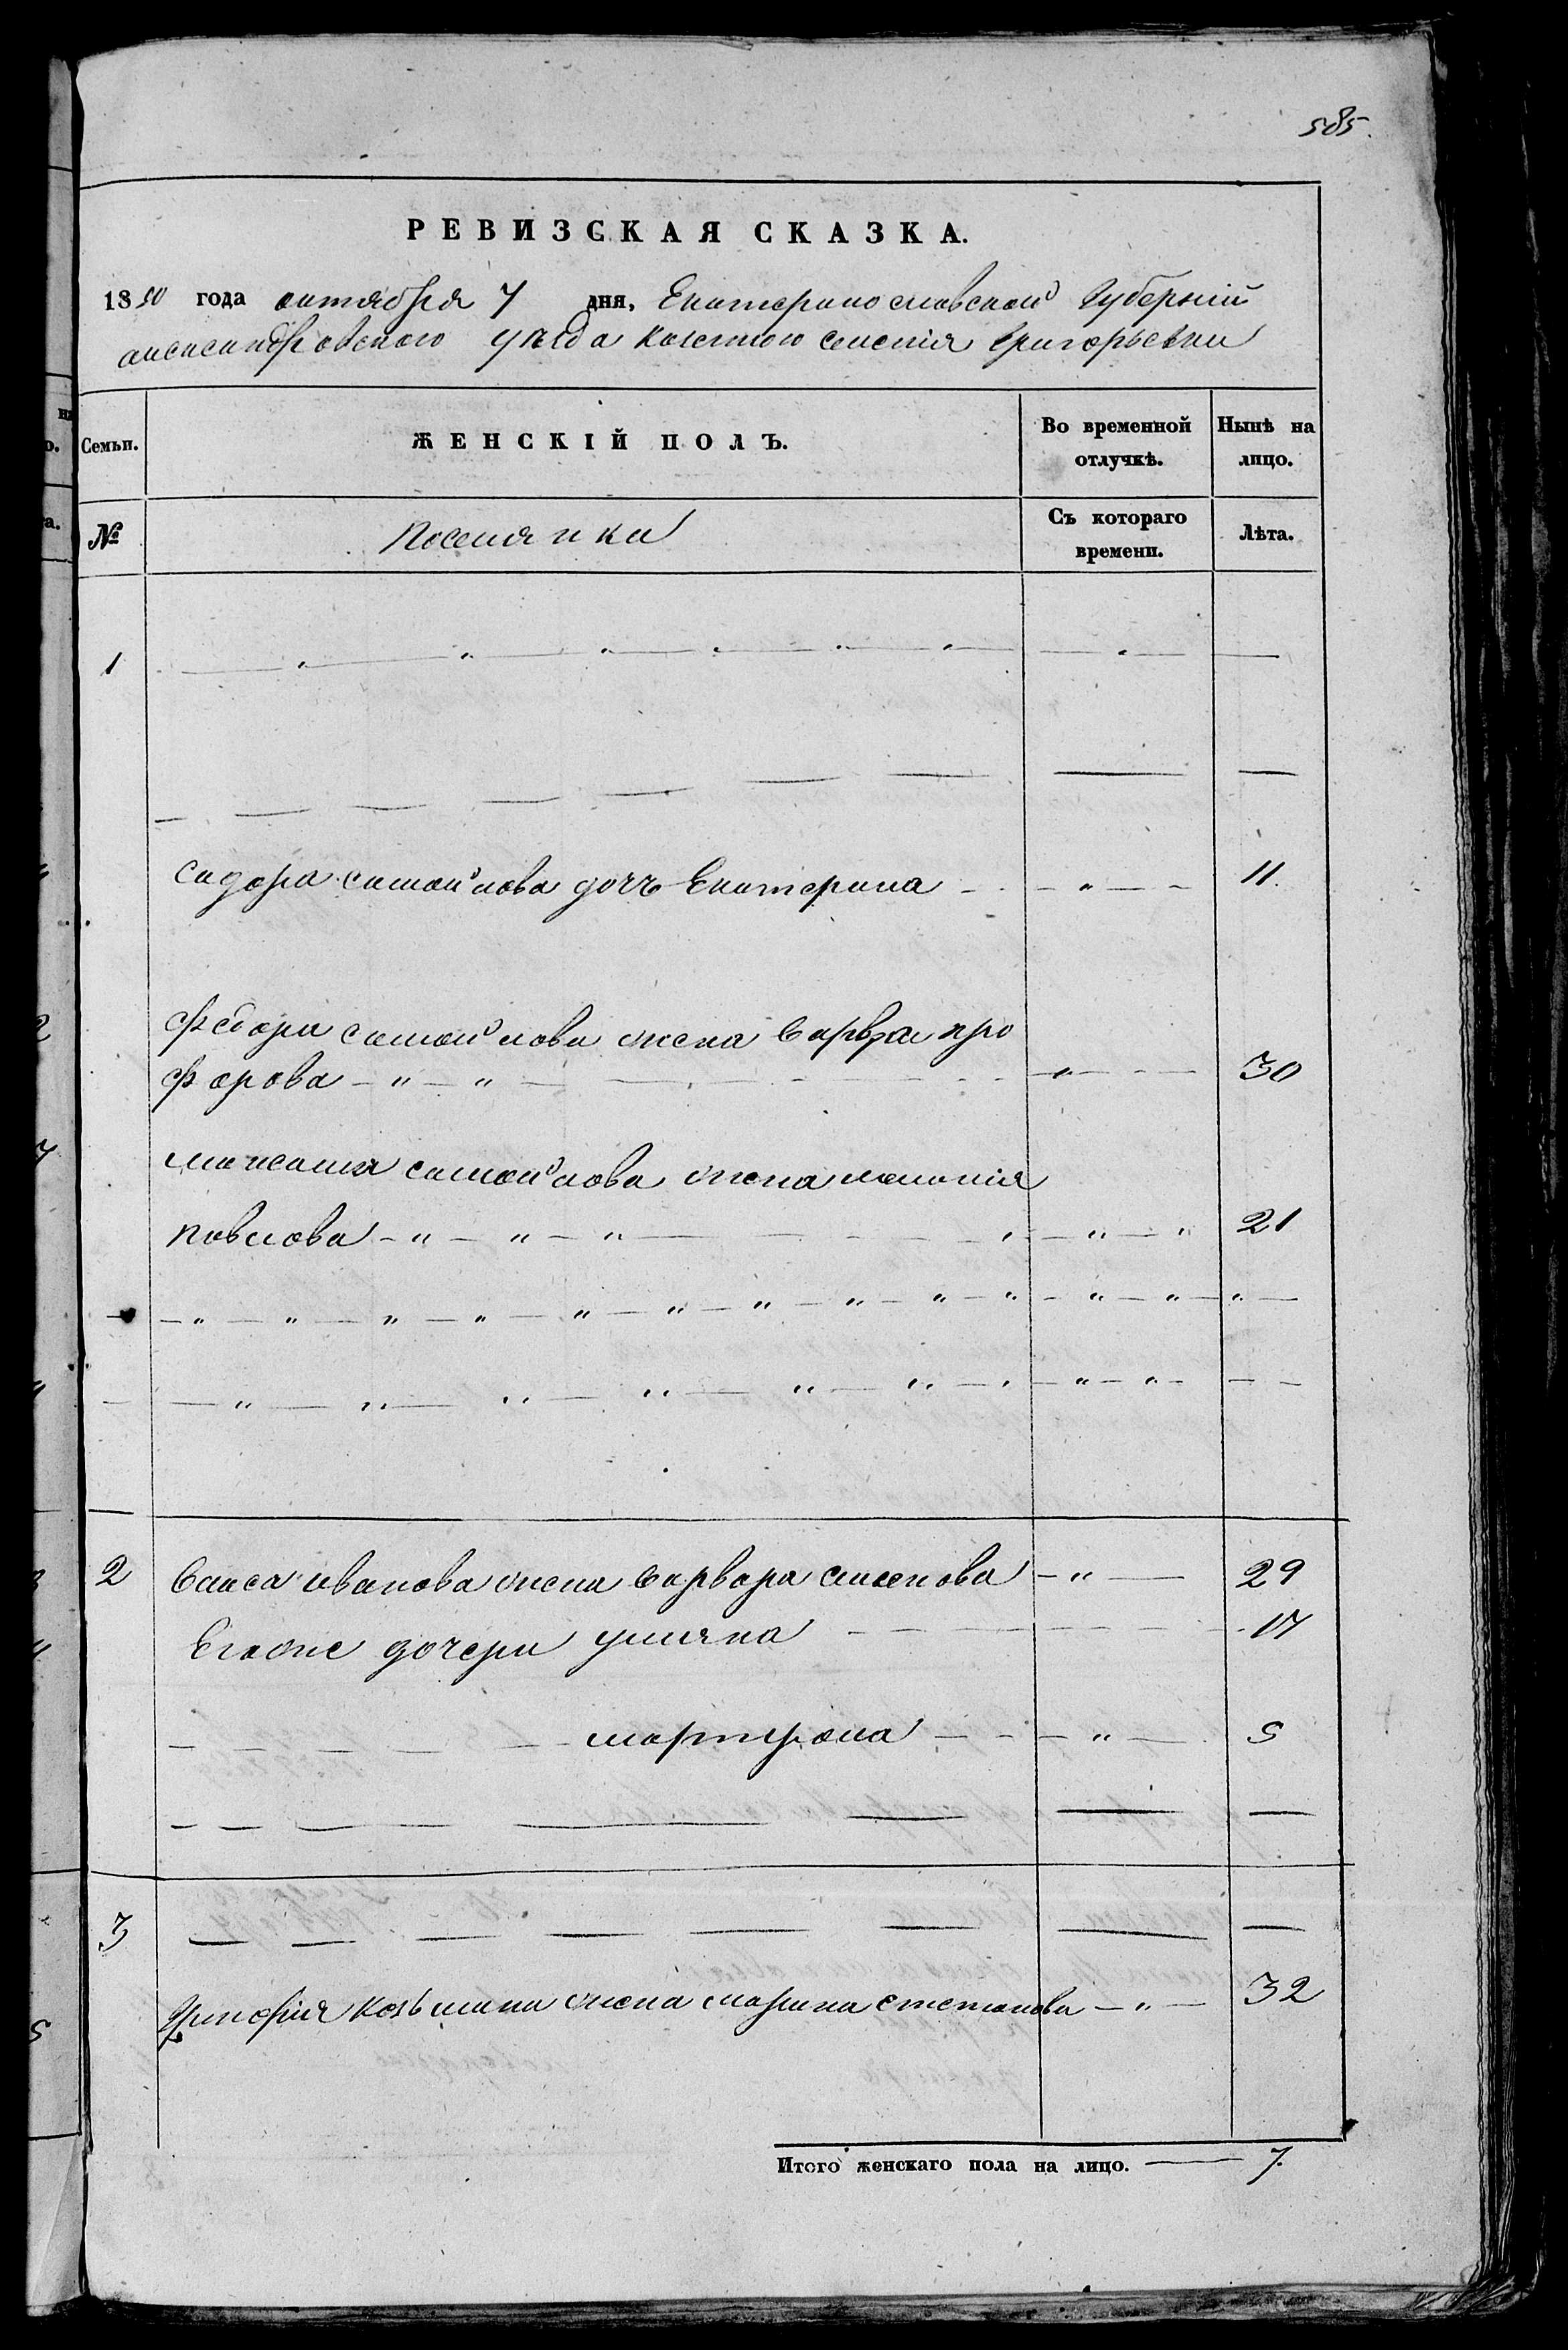 585.
РЕВИЗСКАЯ СКАЗКА.
1850 года октября 7 дня, Екатеринославской Губерній
александровского уезда казенного селенія Григорьевки
Семьи. ЖЕНСКІЙ ПОЛЪ. Во временной отлучкѣ. Нынѣ на лицо.
№ Поселянки Съ котораго времени. Лѣта.
1
Сидора самойлова дочь Екатерина - " - 11.
Федора самойлова жена варвара про
форова - " - " - 30
максима самойлова жена меланія
павлова - " - " - " - 21
2 власа иванова жена варвара семенова - " - 29
Егоже дочери улияна - 17
мартрона - " - 5
3
Григорія козьмина жена марина степанова - " - 32
Итого женскаго пола на лицо. — 7.